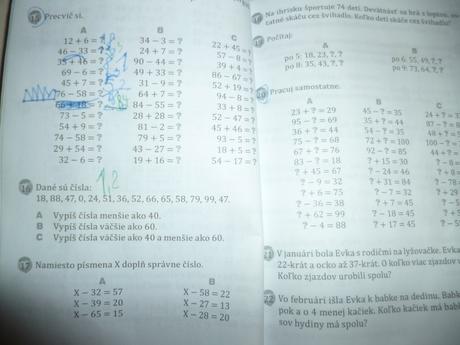 15 Precvič si.
A B C
12 + 6 = ? 34 − 3 = ? 22 + 45 = ?
46 − 33 = ? 24 + 7 = ? 57 − 8 = ?
35 + 46 = ? 90 − 44 = ? 39 + 4 = ?
69 − 6 = ? 49 + 33 = ? 86 − 67 = ?
45 + 7 = ? 31 − 9 = ? 52 + 19 = ?
76 − 58 = ? 64 + 7 = ? 94 − 8 = ?
84 − 55 = ? 33 + 8 = ?
73 − 5 = ? 28 + 28 = ? 52 − 47 = ?
54 + 9 = ? 81 − 2 = ? 45 + 46 = ?
74 − 58 = ? 79 + 5 = ? 93 − 5 = ?
29 + 54 = ? 43 − 27 = ? 18 + 5 = ?
32 − 6 = ? 19 + 16 = ? 54 − 17 = ?
16 Dané sú čísla:
18, 88, 47, 0, 24, 51, 36, 52, 66, 65, 58, 79, 99, 47.
A Vypíš čísla menšie ako 40.
B Vypíš čísla väčšie ako 60.
C Vypíš čísla väčšie ako 40 a menšie ako 60.
17 Namiesto písmena X doplň správne číslo.
A B
X − 32 = 57 X − 58 = 22
X − 39 = 20 X − 27 = 13
X − 65 = 15 X − 28 = 20
Na ihrisku športuje 74 detí. Devätnásť sa hrá s loptou,
tatné skáču cez švihadlo. Koľko detí skáče cez švihadlo?
Počítaj:
po 5: 18, 23, ?, ? po 6: 55, 49, ?, ?
po 8: 35, 43, ?, ? po 9: 73, 64, ?, ?
Pracuj samostatne.
A B
23 + ? = 29 45 − ? = 35 24 + ?
95 − ? = 69 35 + ? = 44 87 − ?
36 + ? = 44 54 − ? = 35 48 + ?
75 − ? = 68 72 + ? = 100 100 − ?
67 + ? = 76 92 − ? = 85 44 + ?
83 − ? = 18 ? + 15 = 30
? + 45 = 67 ? − 24 = 46
? − 9 = 32 ? + 31 = 84
? + 6 = 75 ? − 7 = 32
? − 36 = 38 ? + 7 = 45
? + 62 = 99 ? − 18 = 45
? − 4 = 88 ? + 17 = 45
21 V januári bola Evka s rodičmi na lyžovačke. Evka
22-krát a ocko až 37-krát. O koľko viac zjazdov
Koľko zjazdov urobili spolu?
22 Vo februári išla Evka k babke na dedinu. Babka
pok a o 4 menej kačiek. Koľko kačiek má
sov hydiny má spolu?